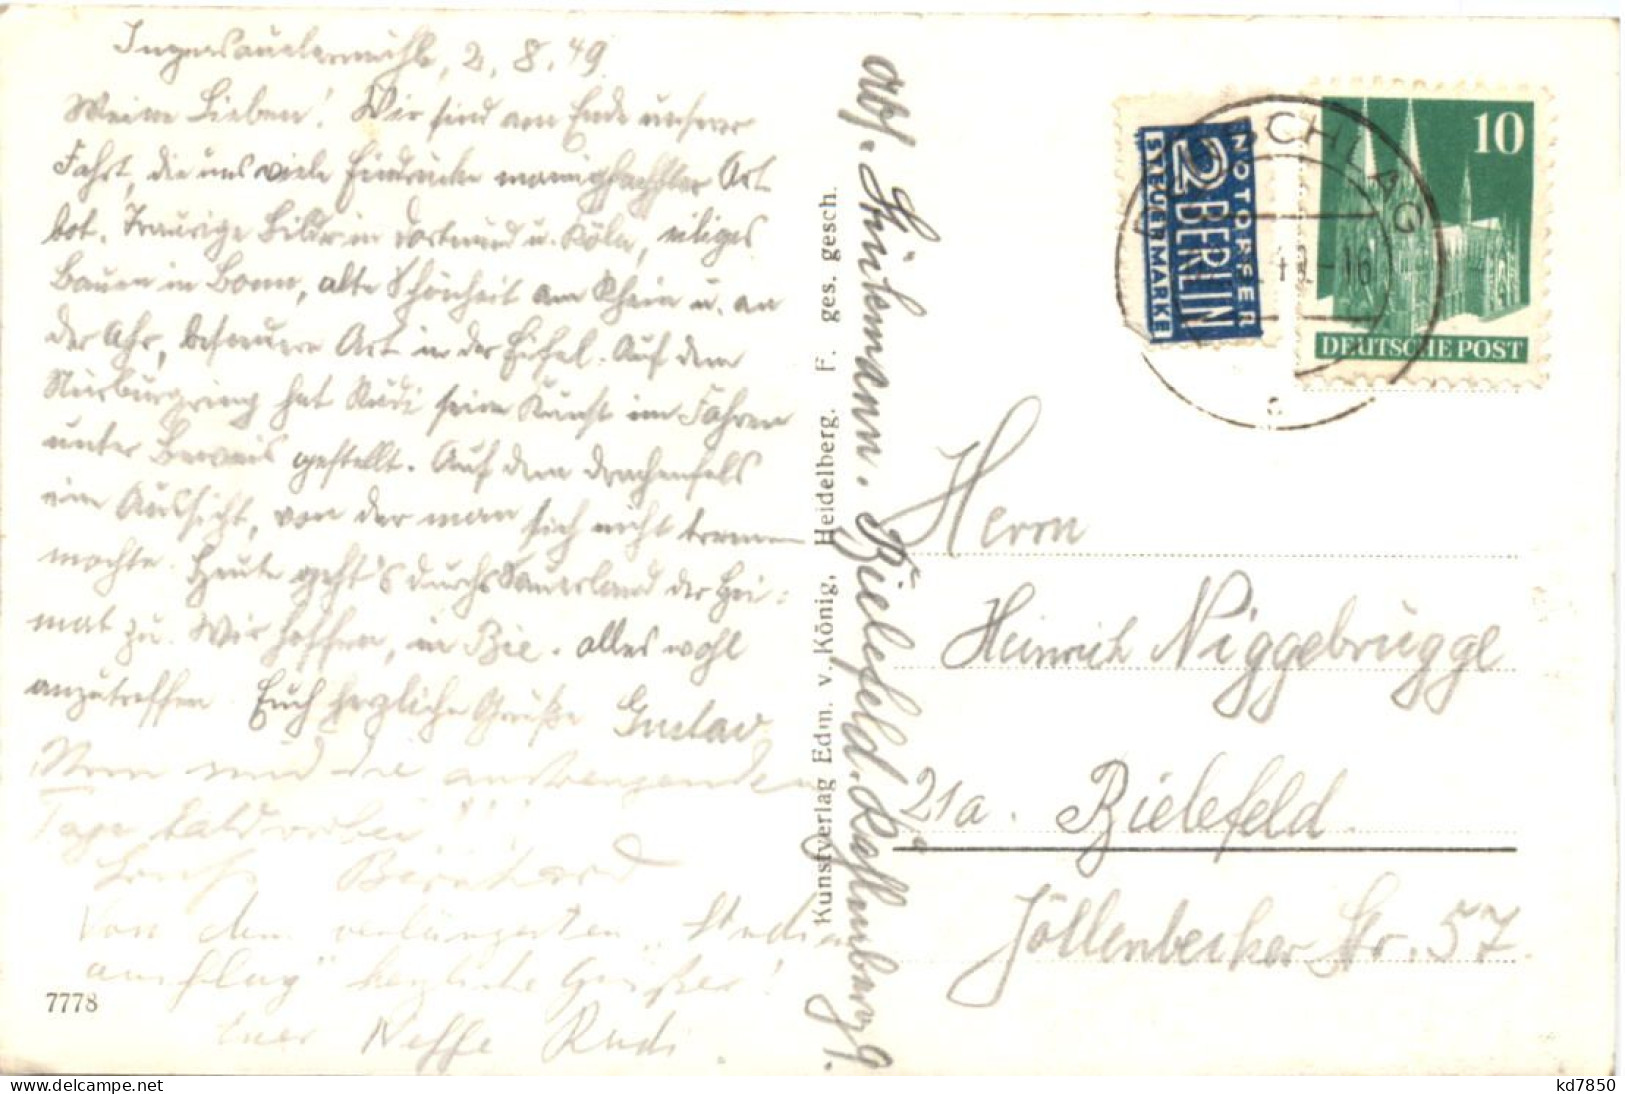 Ingersauelermühle, 2. 8. 49
Meine Lieben! Wir sind am Ende unserer
Fahrt, die uns viele Eindrücke mannigfachster Art
bot. Traurige Bilder in Dortmund u. Köln, eiliges
Bauen in Bonn, alte Schönheit am Rhein u. an
der Ahr, besonnene Art in der Eifel. Auf dem
Nürburgring hat Rudi seine Kunst im Fahren
unter Beweis gestellt. Auf dem Drachenfels
eine Aussicht, von der man sich nicht trennen
mochte. Heute geht's durchs Sauerland der Hei-
mat zu. Wir hoffen, in Bie. alles wohl
anzutreffen. Euch herzliche Grüße Gustav
Nun sind die anstrengenden
Tage bald vorüber!!!
Bernhard
Von dem verlängerten „Studien
ausflug" herzliche Grüße!
Euer Neffe Rudi.
7778
Kunstverlag Edm. v. König, Heidelberg. F. ges. gesch.
Abs. Bielefeld.
NOTOPFER
2 BERLIN
STEUERMARKE
SCHLAG
-16
c
10
DEUTSCHE POST
Herrn
Heinrich Niggebrügge
21a. Bielefeld.
Jöllenbecker Str. 57.
© kd7850